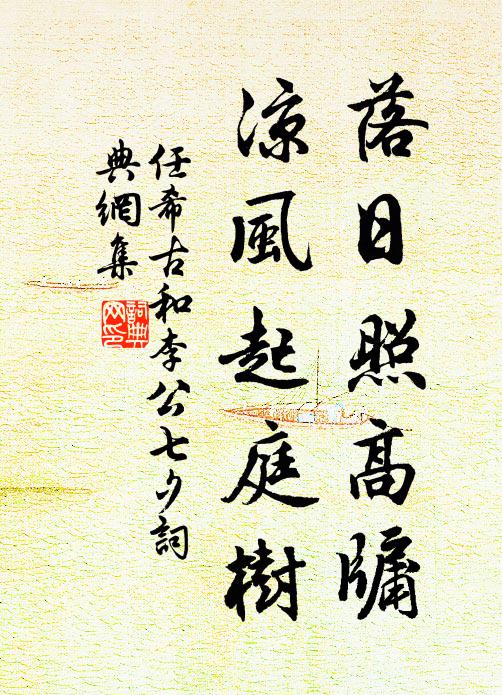 落日照高牖
涼風起庭樹
任希古和李公七夕詞
典網集
詞典
网印